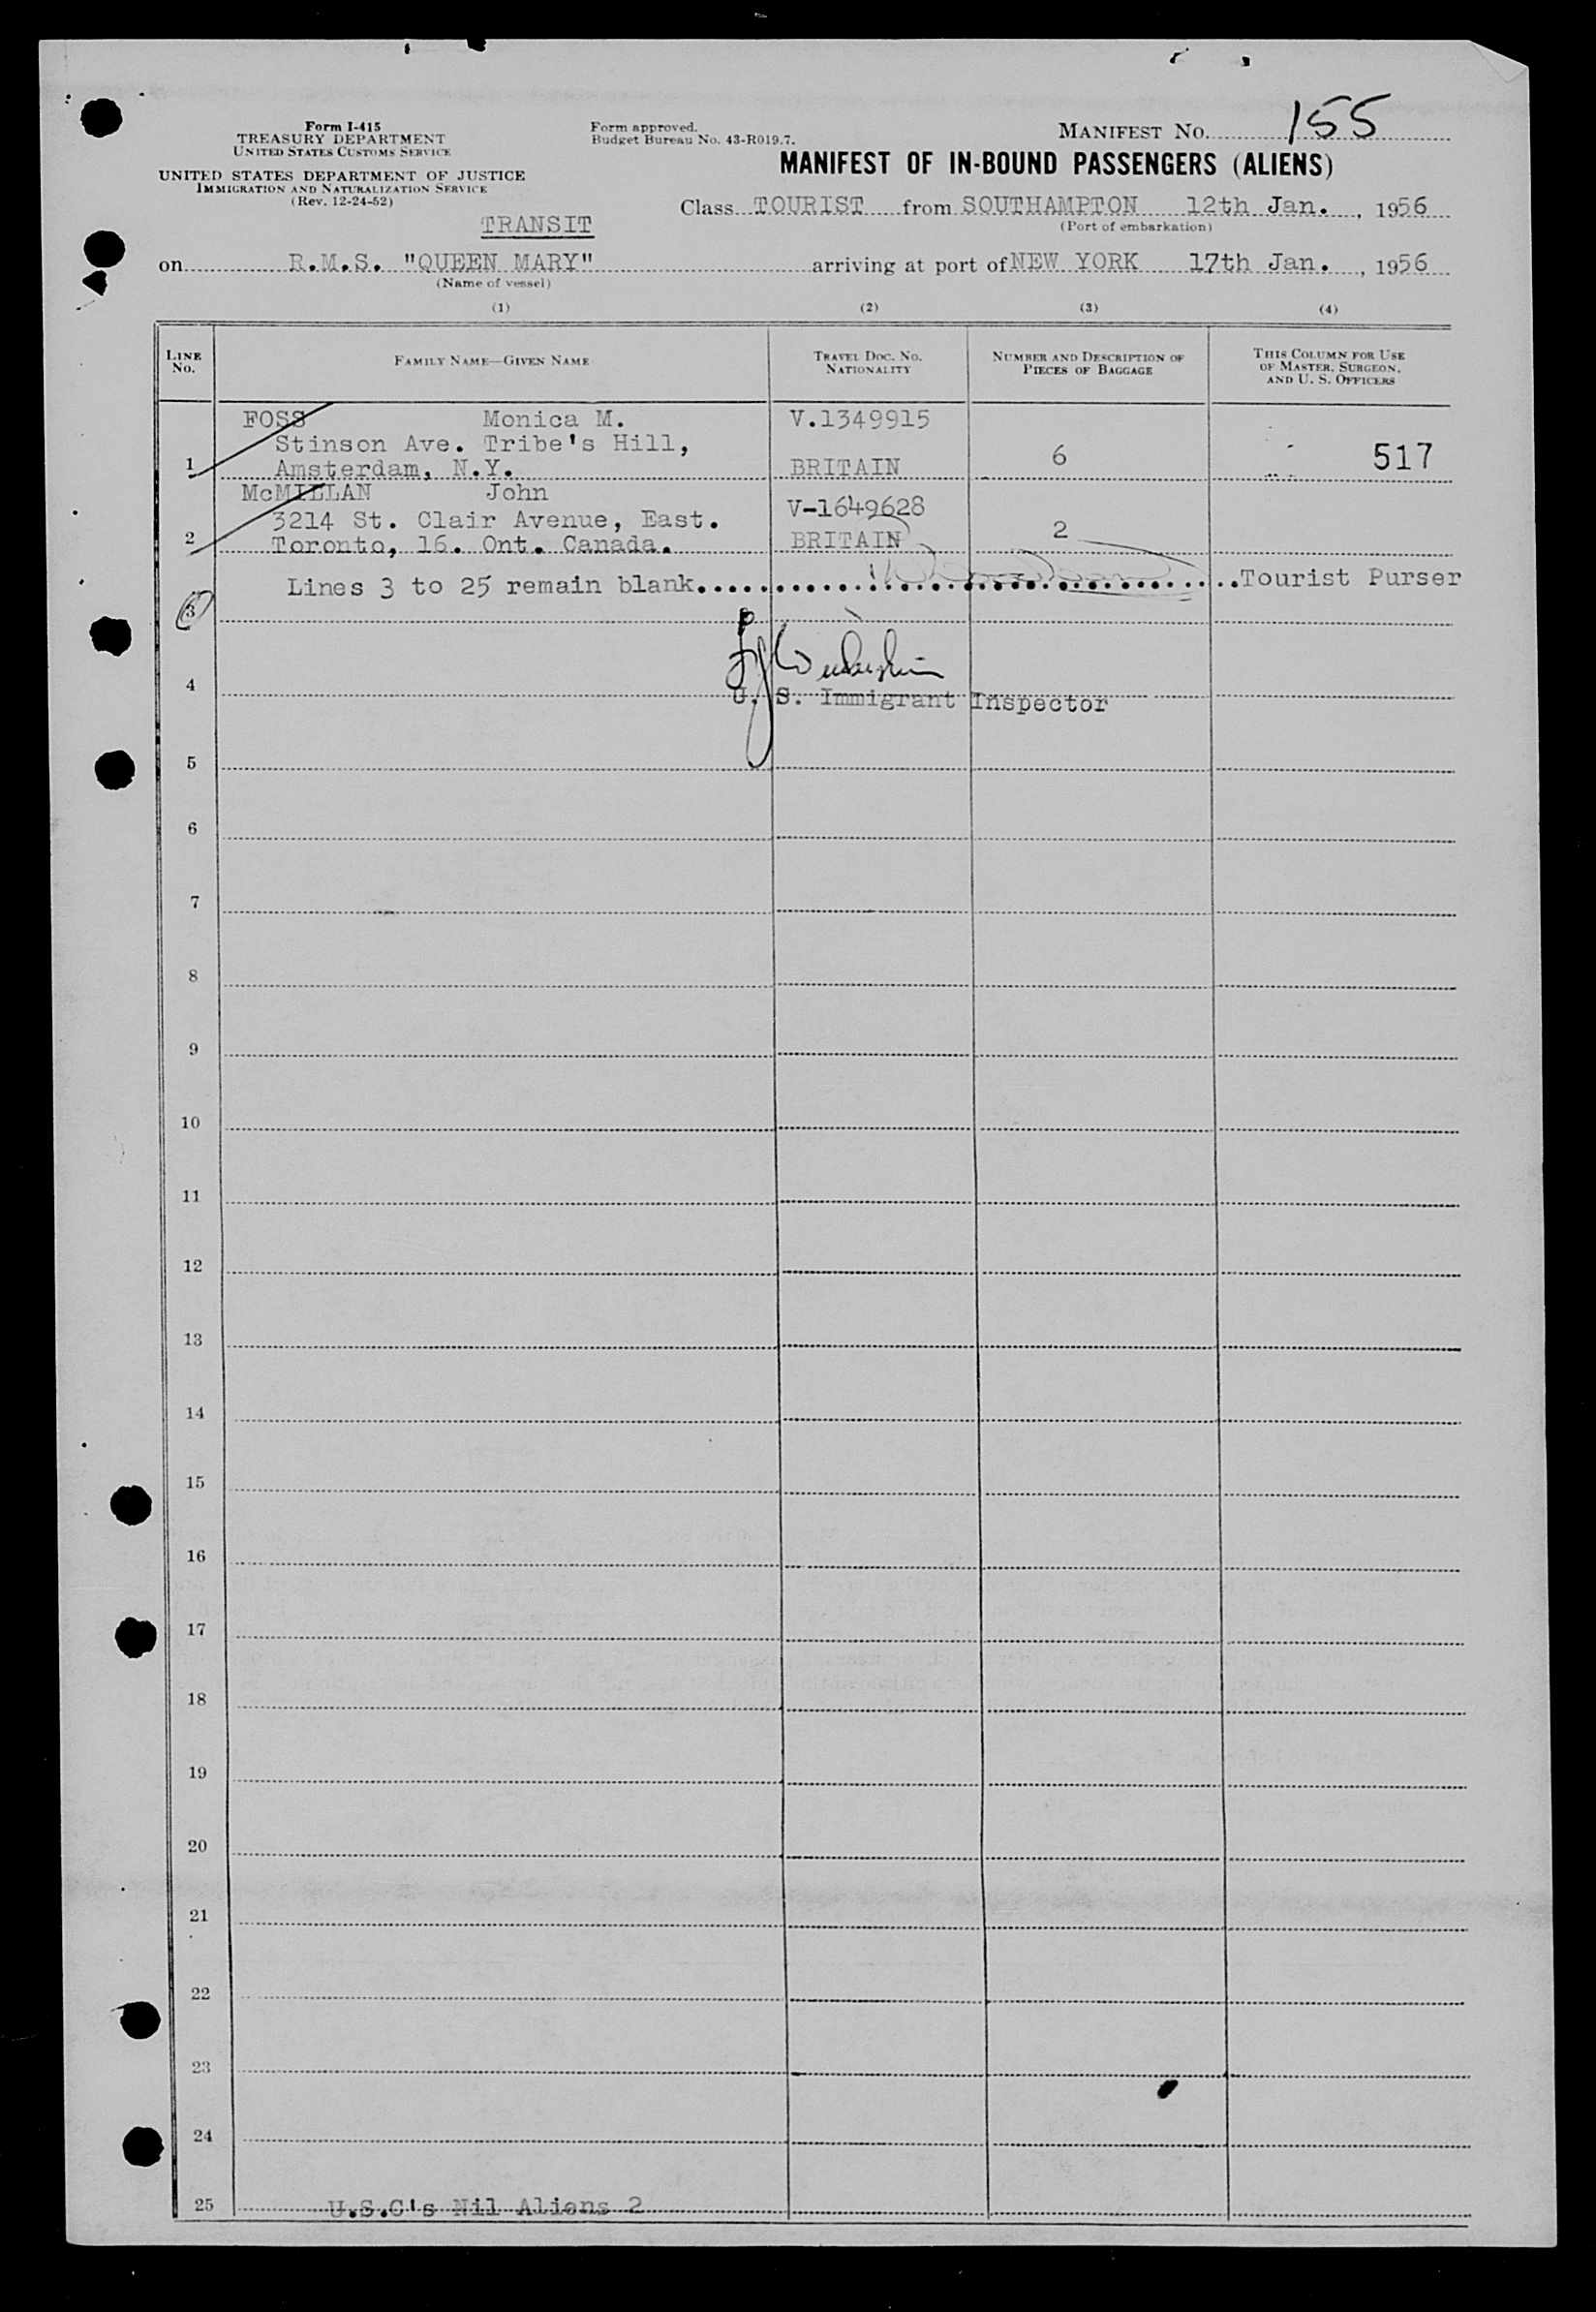 Form I-415
TREASURY DEPARTMENT
UNITED STATES CUSTOMS SERVICE
UNITED STATES DEPARTMENT OF JUSTICE
IMMIGRATION AND NATURALIZATION SERVICE
(Rev. 12-24-52)
Form approved.
Budget Bureau No. 43-R019.7.
MANIFEST NO. 155
MANIFEST OF IN-BOUND PASSENGERS (ALIENS)
Class TOURIST from SOUTHAMPTON 12th Jan., 1956
(Port of embarkation)
TRANSIT
on R.M.S. "QUEEN MARY" arriving at port of NEW YORK 17th Jan., 1956
(Name of vessel)
(1) (2) (3) (4)
LINE NO. FAMILY NAME—GIVEN NAME TRAVEL DOC. NO. NATIONALITY NUMBER AND DESCRIPTION OF PIECES OF BAGGAGE THIS COLUMN FOR USE OF MASTER, SURGEON, AND U. S. OFFICERS
FOSS Monica M. V.1349915
Stinson Ave. Tribe's Hill,
1 Amsterdam, N.Y. BRITAIN 6 517
McMILLAN John
3214 St. Clair Avenue, East. V-1649628
2 Toronto, 16. Ont. Canada. BRITAIN 2
Lines 3 to 25 remain blank...............................Tourist Purser
3
4
U. S. Immigrant Inspector
5
6
7
8
9
10
11
12
13
14
15
16
17
18
19
20
21
22
23
24
25 U.S.C's Nil Aliens 2